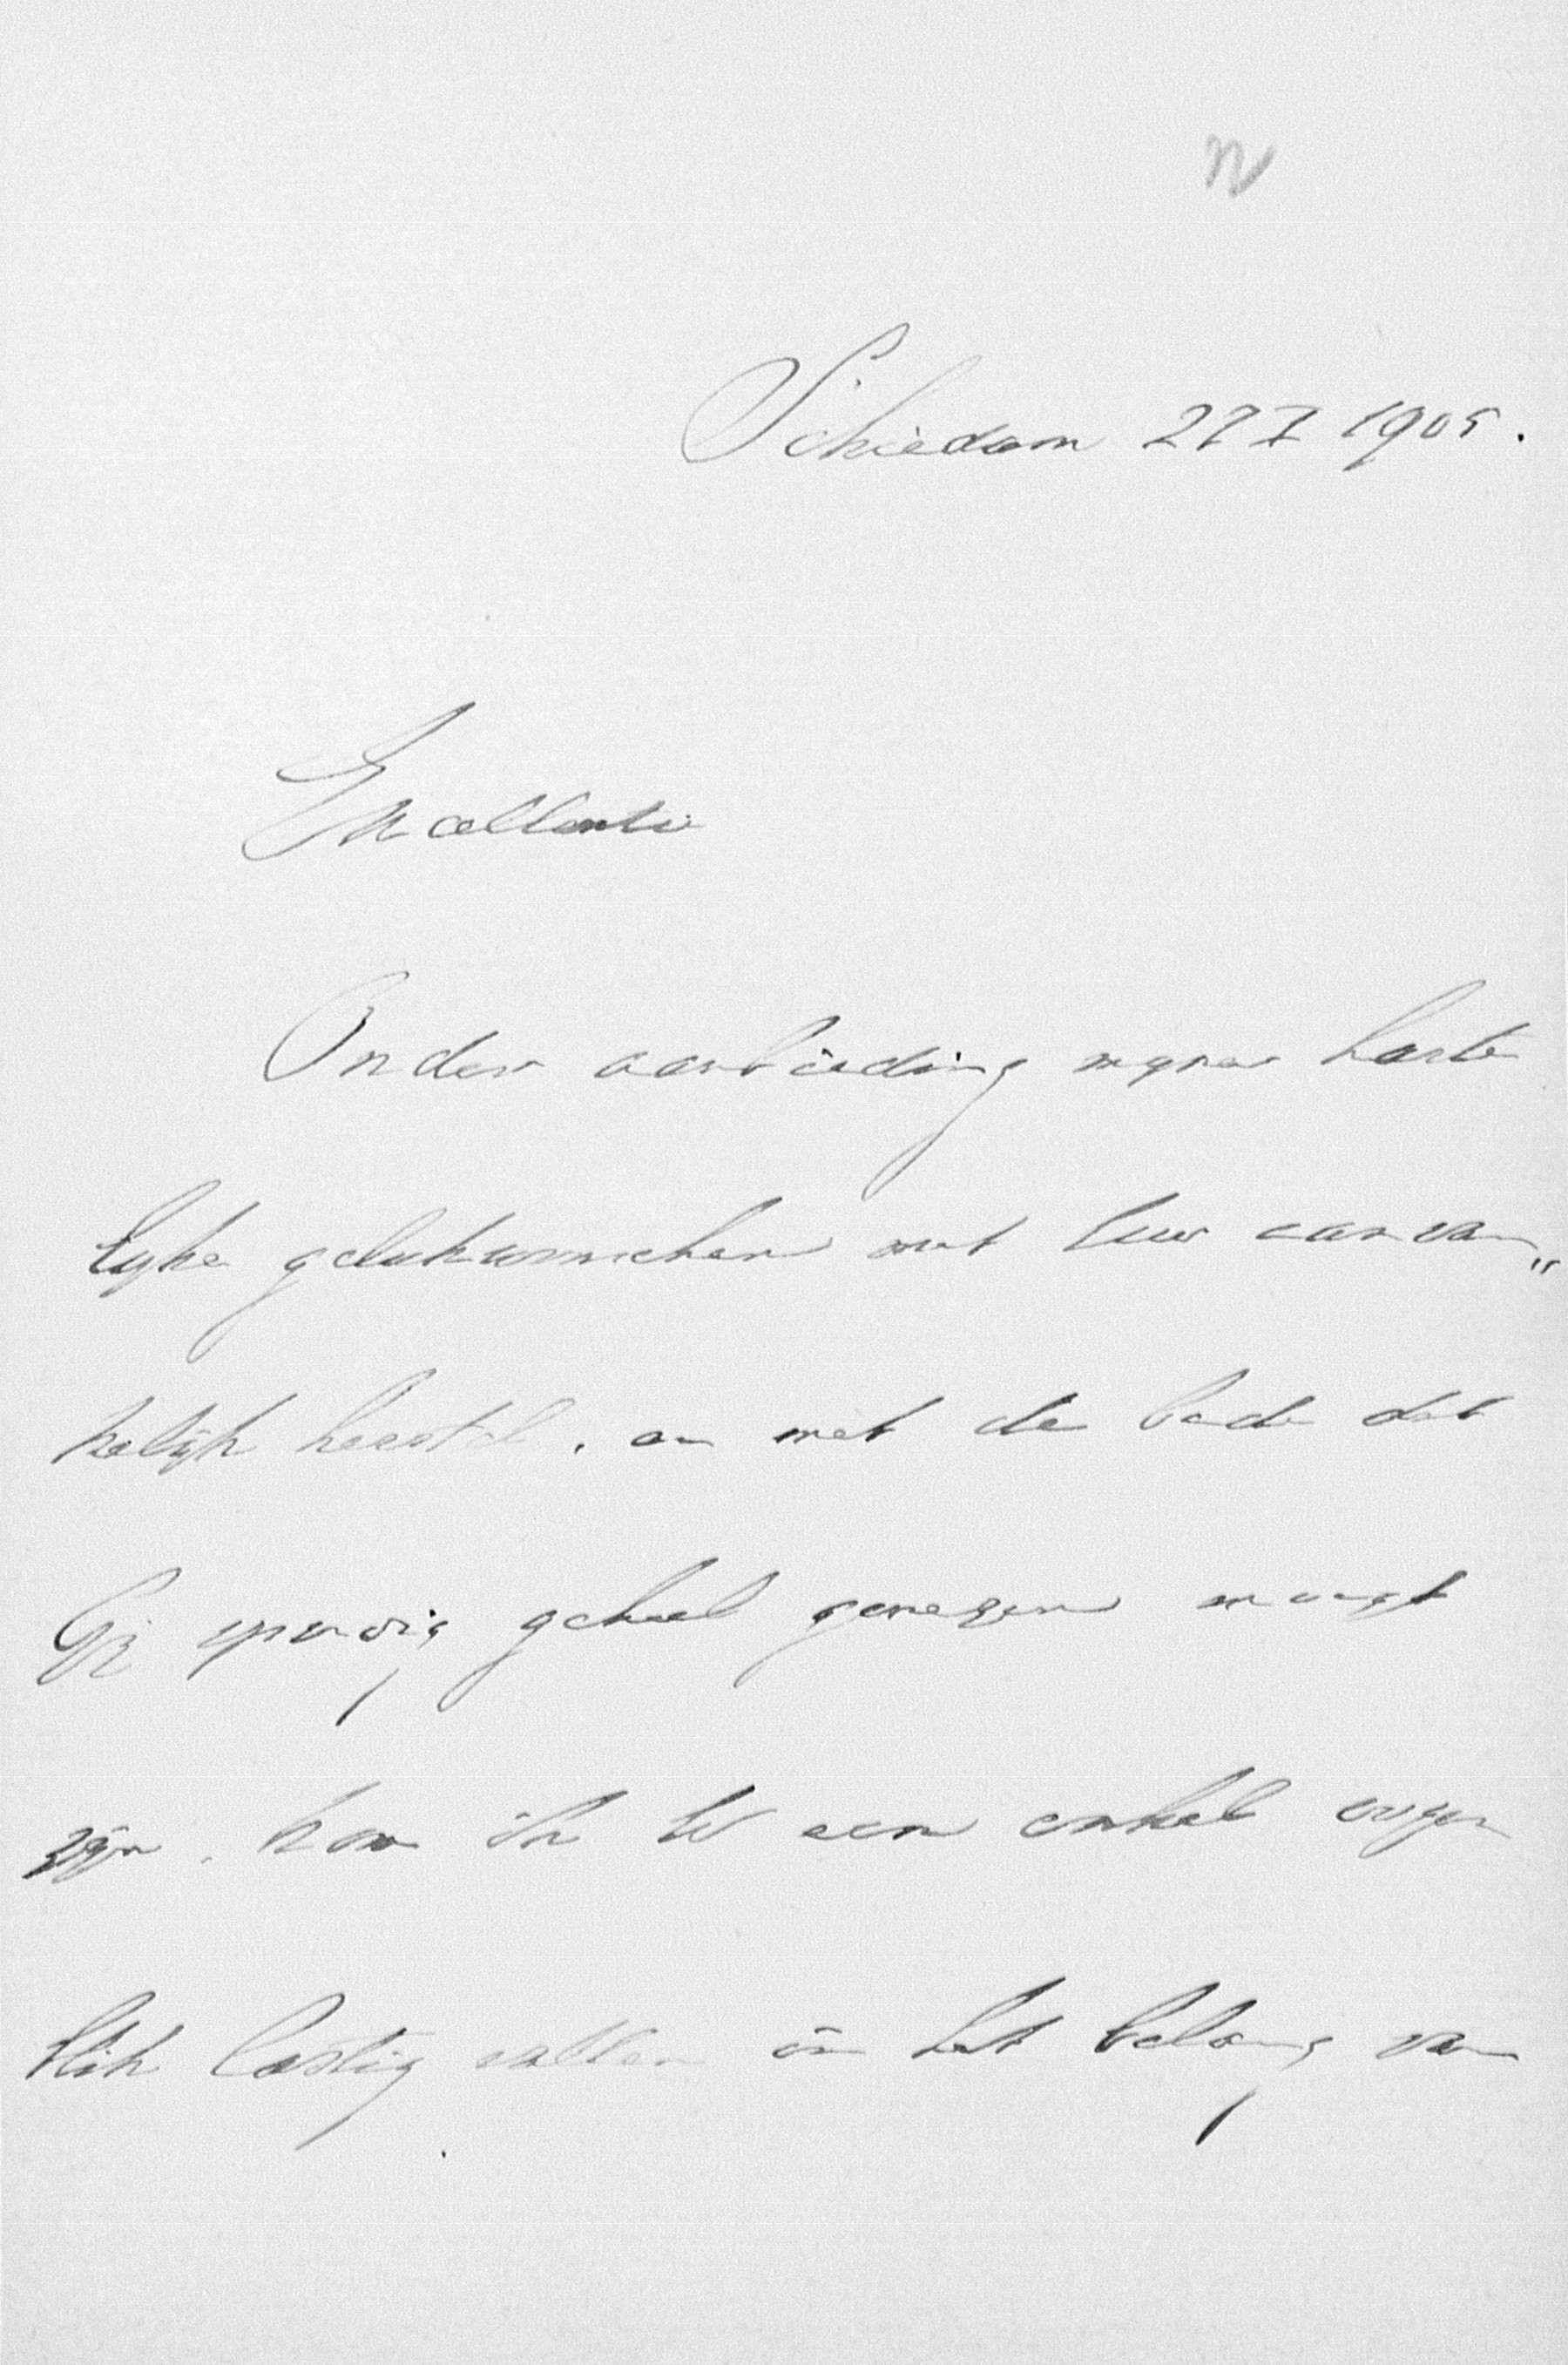 n
Schiedam 27 I 1905.
Excellentie
Onder aanbieding mijner harte
lijke gelukwenschen met Uw aanvan„
kelijk herstel, en met de bede dat
Gij spoedig geheel genezen moogt
zijn, kom ik U een enkel oogen
blik lastig vallen in het belang van